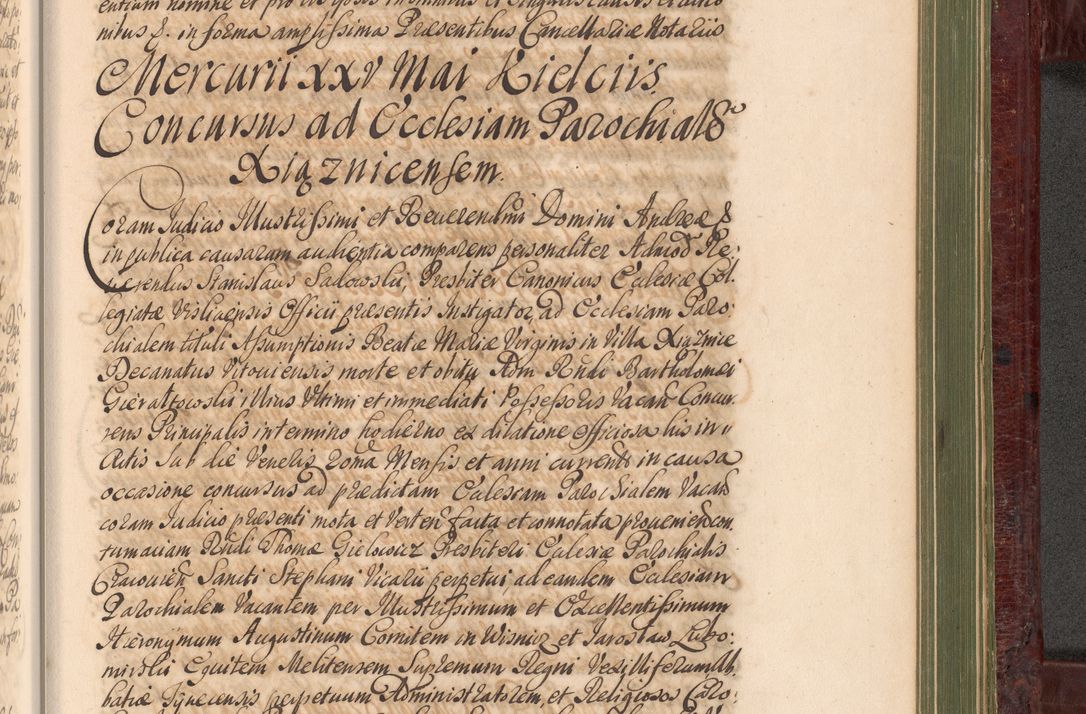 entium nomine et pro
nibus &. in forma amplissima Præsentibus Cancellariæ Notariis
Mercurii XXV Mai Kielciis.
Concursus ad Ecclesiam Parochialē
Xiąznicensem.
Coram Judicio Illustrissimi et Reverendissimi Domini Andreæ &
in publica causarum audientia comparens personaliter Admod Re:
verendus Stanislaus Sadowski, Presbiter Canonicus Ecclesiæ Col:
legiatæ Visliciensis Officii præsentis Instigator, ad Ecclesiam Paro:
chialem tituli Assumptionis Beatæ Mariæ Virginis in Villa Xiąznice
Decanatus Pitoviensis morte et obitu Adm Rñdi Bartholomei
Gieraltowski illius Ultimi et immediati Possessoris Vacan Concur
rens Principalis in termino hodierno ex dilatione officiosa his in
Actis sub die Veneris 20ma Mensis et anni currentis in causa
occasione concursus ad prædictam Ecclesiam Parochialem Vacan
coram Judicio præsenti mota et Verten facta et connotata provenien con
tumaciam Rñdi Thomæ Gielowicz Presbiteri Ecclesiæ Parochialis
Cracovien Sancti Stephani Vicarii perpetui, ad eandem Ecclesiam
Parochialem Vacantem per Illustrissimum et Excellentissimum
Hieronymum Augustinum Comitem in Wisnicz et Jaroslaw Lubo:
mirski Equitem Melitensem Supremum Regni Vexilliferum Ab
batiæ Tynecensis perpetuum Administratorem, et Religiosos